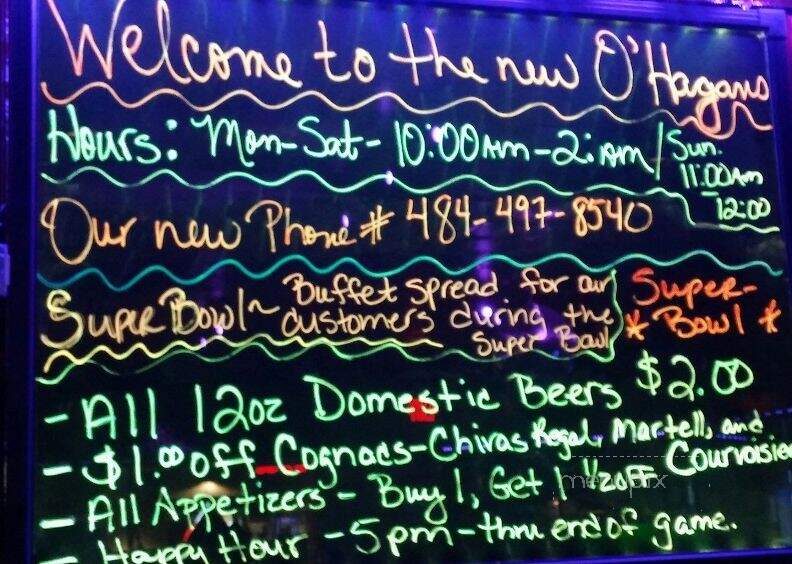 Welcome to the new O'Hagans
Hours: Mon-Sat- 10:00Am-2:Am/Sun.
11:00Am
- 12:00
Our new Phone # 484-497-8540
Super Bowl~ Buffet spread for our
customers during the
Super Bowl
Super-
* Bowl *
- All 12oz Domestic Beers $2.00
- $1.00 off Cognacs-Chivas Regal, Martell, and
Courvoisie
- All Appetizers - Buy 1, Get 1 1/2 OFF
- Happy Hour -5pm-thru end of game.